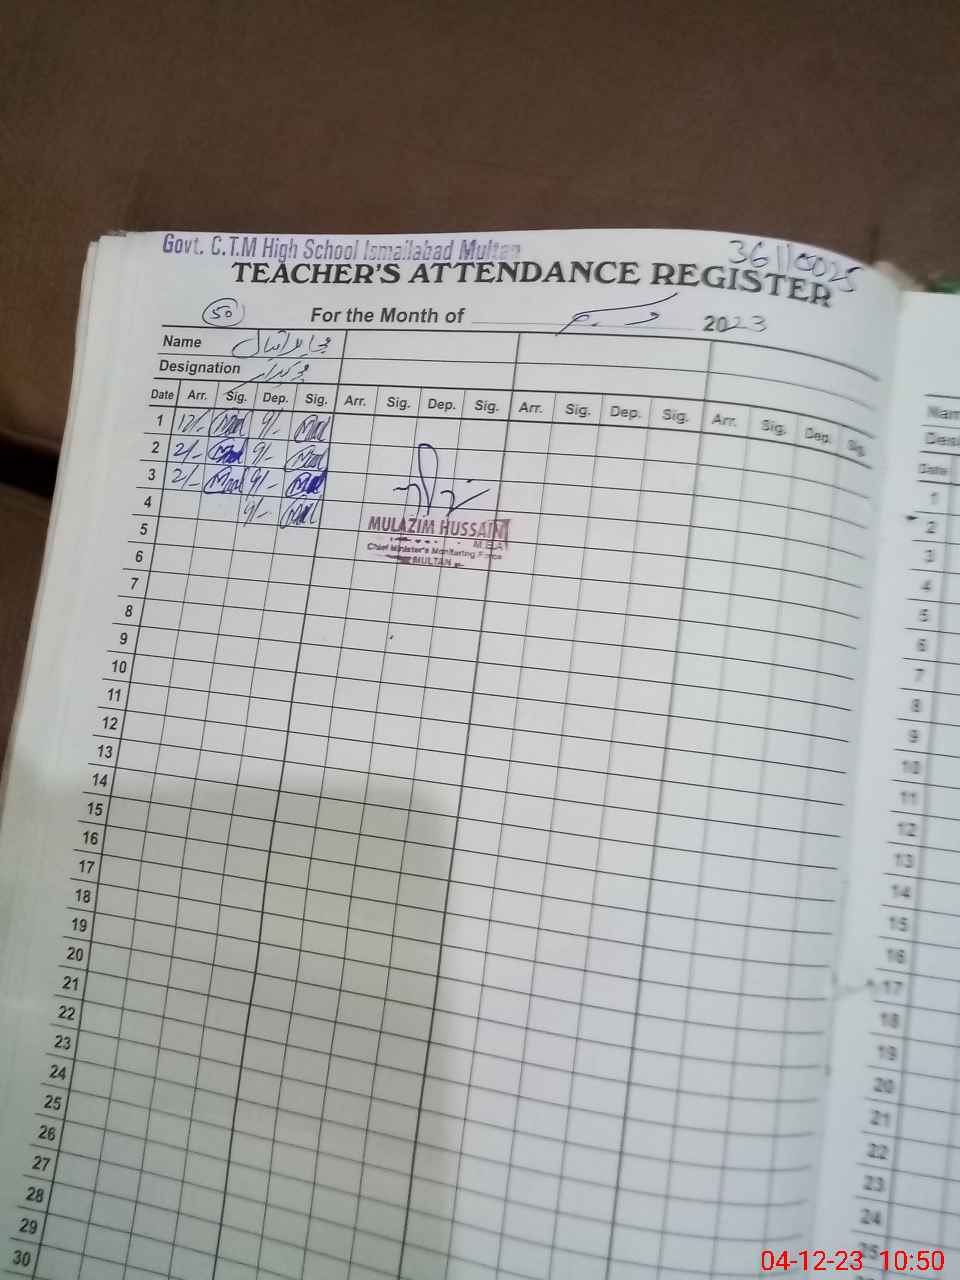 Govt. C.T.M High School Ismailabad Multan
36110025
TEACHER'S ATTENDANCE REGISTER
50
For the Month of دسمبر 2023
Name
Designation چوکیدار
Date Arr. Sig. Dep. Sig. Arr. Sig. Dep. Sig. Arr. Sig. Dep. Sig. Arr. Sig. Dep. Sig.
1 12/- 9/-
2 2/- 9/-
3 2/- 9/-
4 9/-
5
6
7
8
9
10
11
12
13
14
15
16
17
18
19
20
21
22
23
24
25
26
27
28
29
30
MULAZIM HUSSAIN
M.E.A
Chief Minister's Monitoring Force
MULTAN
Nam
Desi
Date
1
2
3
4
5
6
7
8
9
10
11
12
13
14
15
16
17
18
19
20
21
22
23
24
25
04-12-23 10:50